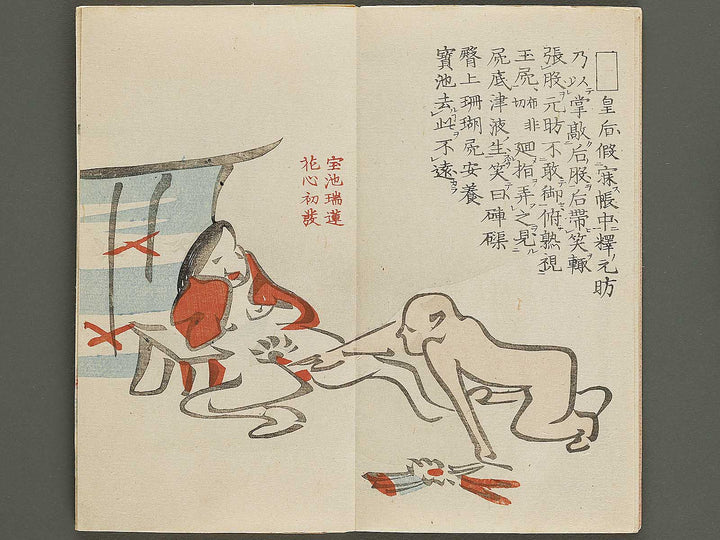 皇后假寐帳中釋元昉
乃以掌敲后股后帶笑輒
張股元昉不敢御俯熟視
玉屍切布非廻指弄之見
屍底津液生笑曰硨磲
臀上珊瑚屍安養
寶池去此不遠
宝池瑞蓮
花心初發